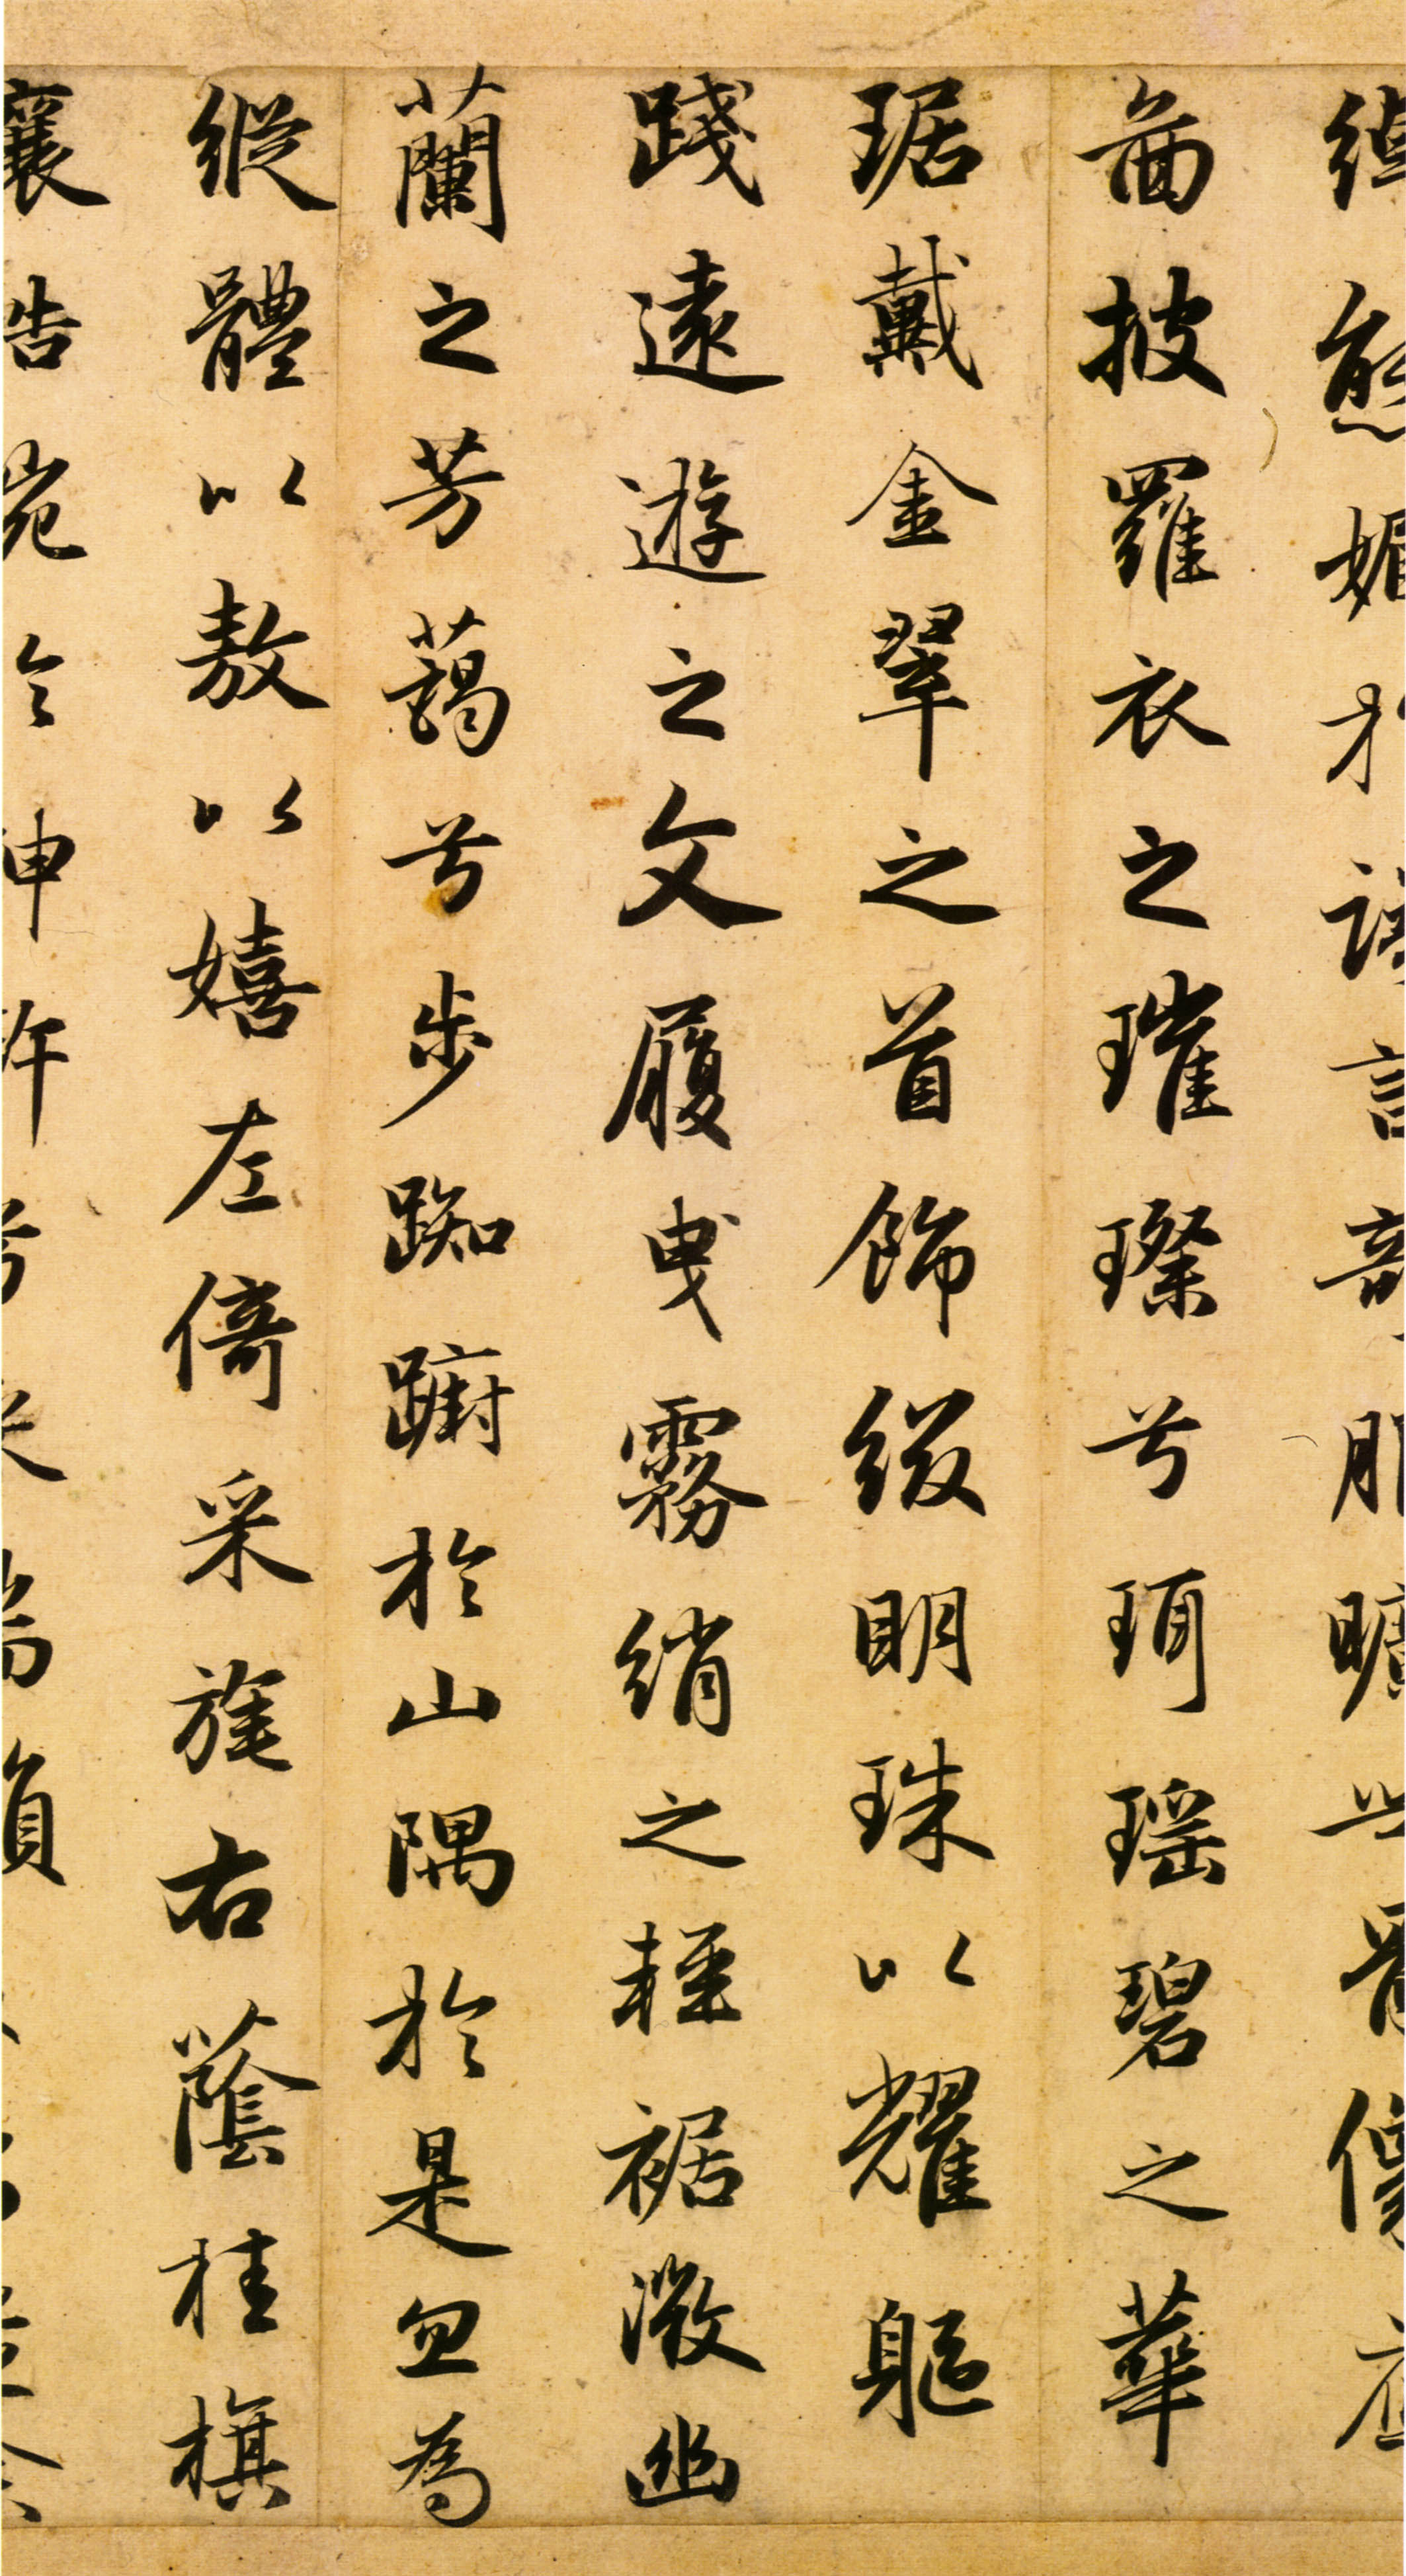 綽態媚於語言奇服曠世骨像應
圖披羅衣之璀璨兮珥瑤碧之華
琚戴金翠之首飾綴明珠以耀軀
踐遠遊之文履曳霧綃之輕裾微幽
蘭之芳藹兮步踟躕於山隅於是忽焉
縱體以敖以嬉左倚采旄右蔭桂旗